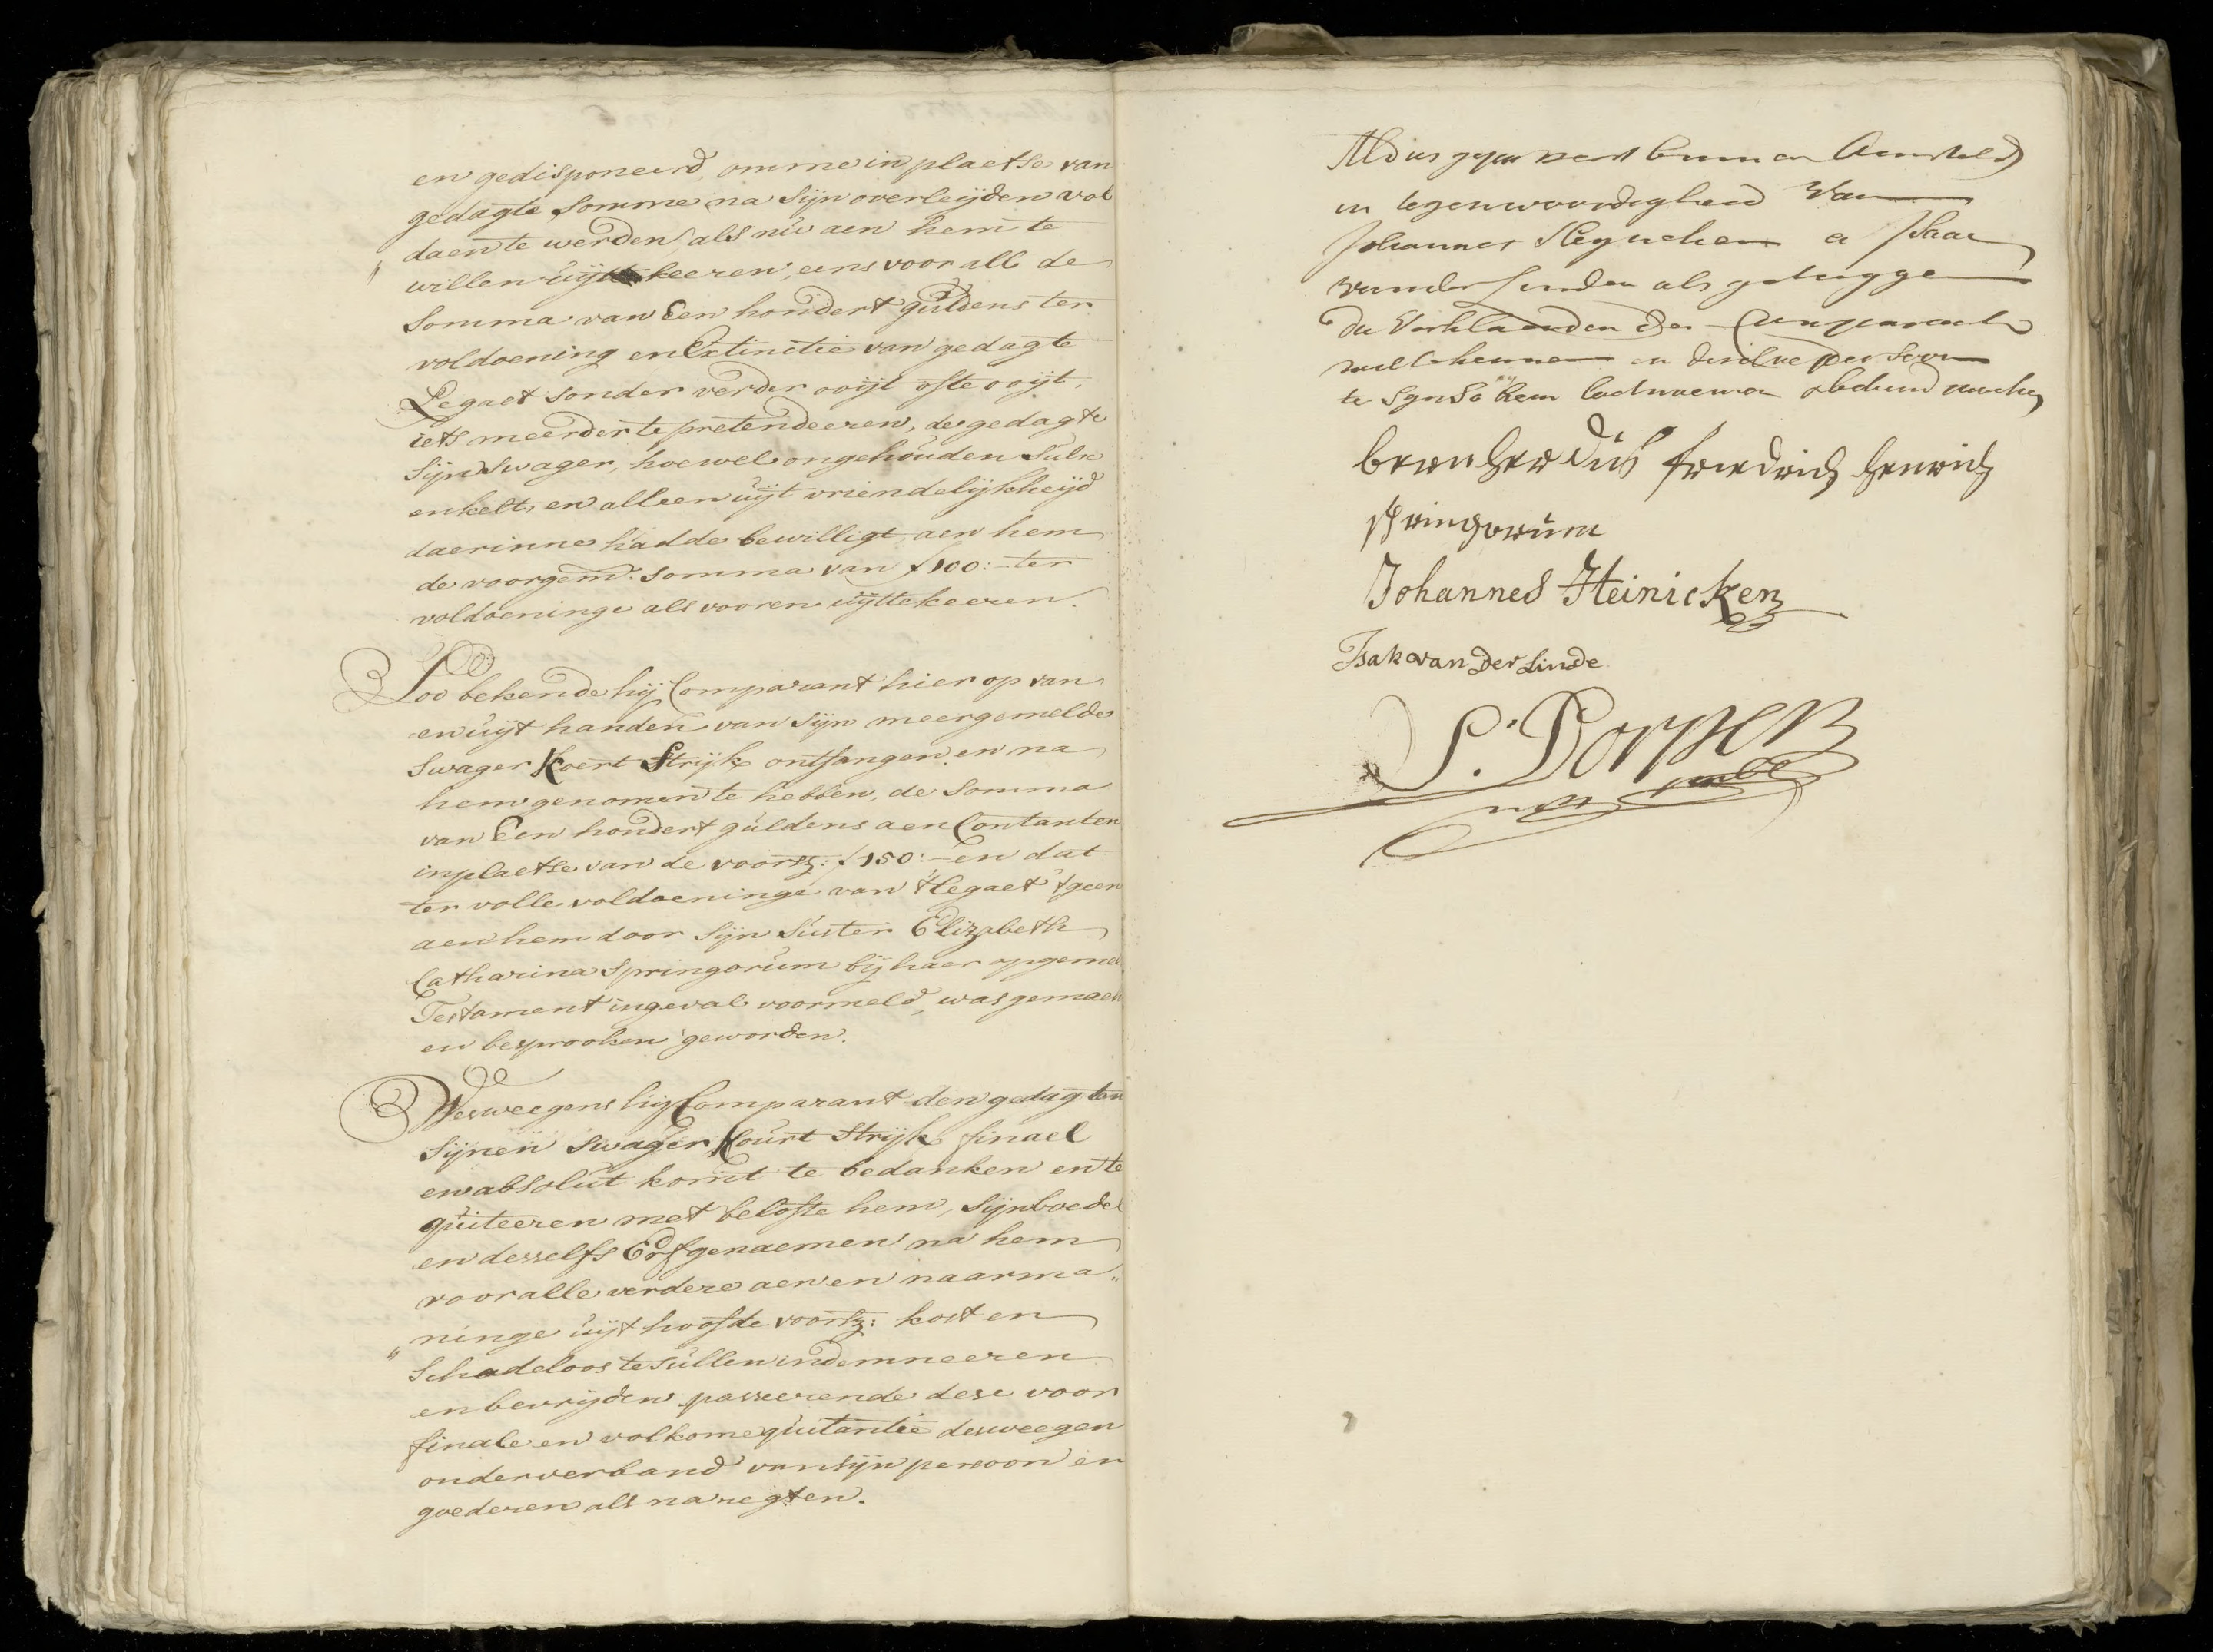 en gedisponeerd, omme in plaetse van
gedagte somme na sijn overleijden vol
daen te werden als nu aen hem te
" willen uijtkeeren, eens voor all de
Somma van Een hondert guldens ter
voldoening en Extinctie van gedagte
Legaet sonder verder ooijt ofte ooijt,
iets meerder te pretendeeren, de gedagte
Sijn Swager, hoewel ongehouden Sulx
enkelt, en alleen uijt vriendelijkheijd
daerinne hadde bewilligt aen hem
de voorgem: somma van f 100:- ter
voldoeninge als vooren uijttekeeren.
Soo bekende hij Comparant hier op van
en uijt handen van sijn meergemelde
Swager Koert Strijk ontfangen en na
hem genomen te hebben, de Somma
van Een hondert guldens aen Contanten
inplaetse van de voorsz: f 150:- en dat
ter volle voldoeninge van 't legaet 't geen
aen hem door Sijn Suster Elizabeth
Catharina Springorum bij haer opgemel
Testament ingeval voormeld, was gemaek
en besprooken geworden.
Wesweegens hij Comparant den gedagten
Sijnen Swager Court Strijk finael
en absolut komt te bedanken en te
quiteeren met belofte hem, Sijn boedel
en desselfs Erfgenaemen na hem
voor alle verdere aen en naarma"
" ninge uijt hoofde voorsz: kost en
Schadeloos te sullen indemneeren
en bevrijden passeerende dese voor
finale en volkome quitantie desweegen
onder verband van sijn persoon en
goederen als na regten.
Aldus gepasseert binnen Amsteld
in tegenwoordigheid Van
Johannes Heyneken en Isaac
vander Linden als getuygge
Die Verklaerden den Comparant
wel te kennen en deselve persoon
te syn so hem laat noemen
bernherdus friedrich henrich
springorum
Johannes Heinicken
Isak van der Linde
S. Dorper
not publ